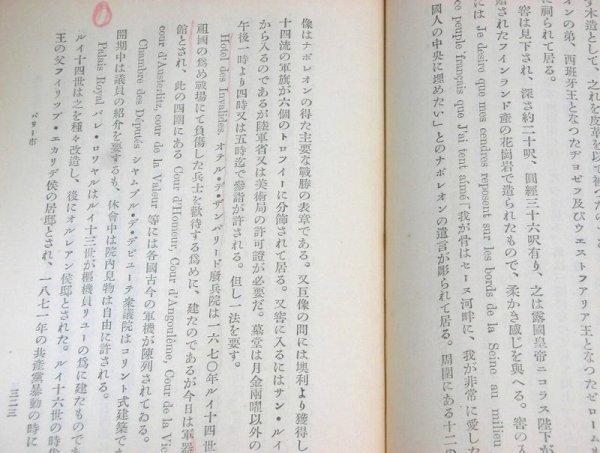 す木造として、之れを皮革を以て被つたの
オンの弟、西班牙王となつたヂョゼフ及びウエストフアリア王となつたゼローム
に祠られて居る。
窖は見下され、深さ約二十呎、圓經三十六呎有り、之は露國皇帝ニコラス陛下が
贈されたフインランド産の花崗岩で造られたもので、柔かき感じを與へる。窖の入
には Je desire que mes cendres repesent sur les bords de la Seine au milieu
ce peuple français que J'ai tent aimé「我が骨はセーヌ河畔に、我が非常に愛した
國人の中央に埋めたい」とのナポレオンの遺言が彫られて居る。周圍にある十二の
像はナポレオンの得た主要な戰勝の表章である。又巨像の間には墺利より獲得し
十四流の軍旗が六個のトロフイーに分篩されて居る。又窖に入るにはサン・ルイ
から入るのであるが陸軍省又は美術局の許可證が必要だ。墓堂は月金兩曜以外の
午後一時より四時又は五時迄で參詣が許される。但し一法を要す。
Hotel des Invalides, オテル・デ・ザンバリード廢兵院は一六七〇年ルイ十四世
祖國の爲め戰場にて負傷した兵士を歡待する爲めに、建たのであるが今日は軍器
館とされ、此の四圍にある Cour d'Homeur, Cour d'Angoulème, Cour de la Vic
cour d'Austerlitz, cour de la Valeur 等には各國古今の軍機が陳列されてゐる。
Chambre des Députés シヤムブル・デ・デビユーラ衆議院はコリント式建築で
開期中は議員の紹介を要するも、休會中は院内見物は自由に許される。
Palais Royal パレ・ロワヤルはルイ十三世が樞機員リユーの爲に建たものであ
ルイ十四世は之を種々改造し、後にオルレアン侯邸とされた。ルイ十六世の時
王の父フイリップ・エカリデ侯の居邸とされ、一八七一年の共產黨暴動の時に
パリー市
三二三